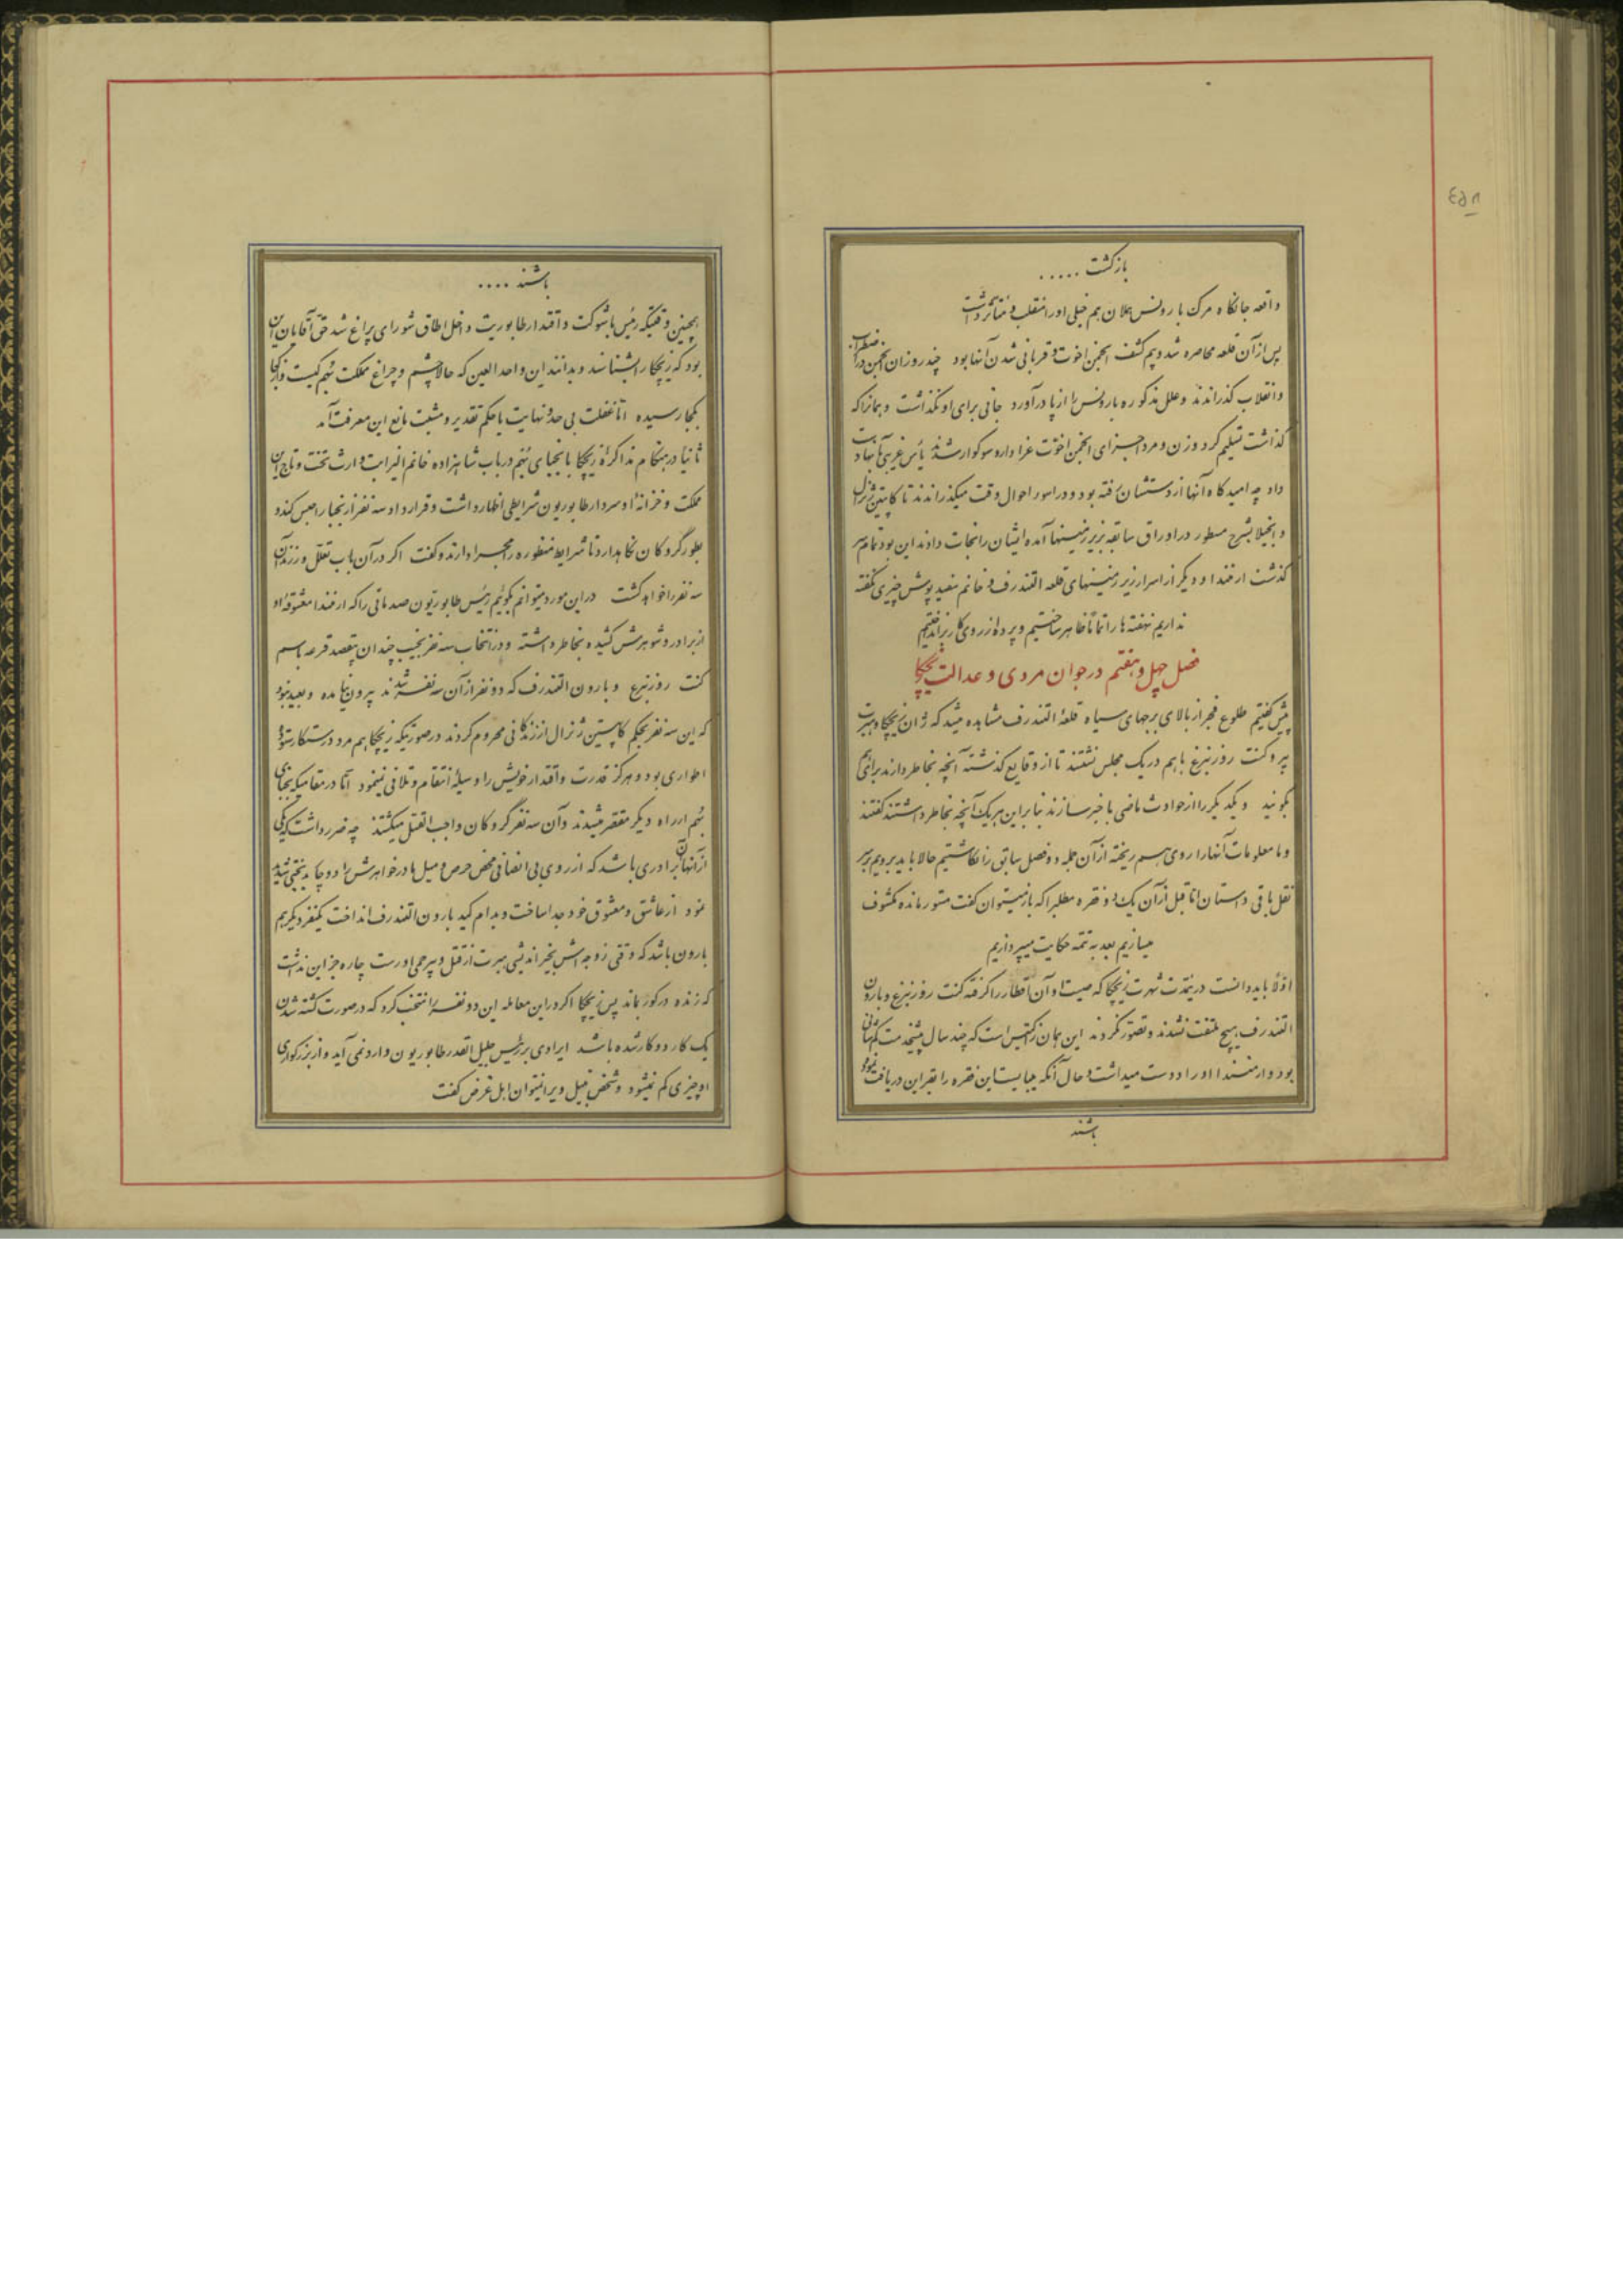 بازگشت .....
واقعه جانکاه مرگ بارونس هلان هم خیلی او را منقلب و متأثر داشت
پس از آن قلعه محاصره شد و بیم کشف انجمن اخوت و قربانی شدن آنها بود چند روز آن انجمن در اضطراب
و انقلاب گذراندند و علل مذکوره بارونس را از پا درآورد جانی برای او نگذاشت و همانرا که
گذاشت تسلیم کرد و زن و مرد اجزای انجمن اخوت عزادار و سوگوار شدند یأس غریبی بآنها دست
داد چه امیدگاه آنها از دستشان رفته بود و در اسوء احوال وقت میگذراندند تا کاپیتین ژنرال
بشرح مسطور در اوراق سابقه بزیر زمینها آمده ایشان را نجات دادند این بود تمام سر
گذشت ارمندا و دیگر از اسرار زیر زمینهای قلعه التندرف و خانم سفیدپوش چیزی نگفته
نداریم نهفته‌ها را تماماً ظاهر ساختیم و پرده از روی کار برانداختیم
فصل چهل و هفتم در جوان مردی و عدالت زیچکا
پیش گفتیم طلوع فجر از بالای برجهای سیاه قلعهٔ التندرف مشاهده میشد که ژان زیچکا و هبرت
پیر و کنت روزنبرغ باهم در یک مجلس نشستند تا از وقایع گذشته آنچه بخاطر دارند برای هم
بگویند و یکدیگر را از حوادث ماضی باخبر سازند بنابراین هر یک آنچه بخاطر داشتند گفتند
و ما معلومات آنها را روی هم ریخته از آن جمله دو فصل سابق را نگاشتیم حالا باید برویم بر سر
نقل باقی داستان اما قبل از آن یک دو فقره مطلب را که باز میتوان گفت مستور مانده مکشوف
میسازیم بعد به تتمه حکایت میپردازیم
اولاً باید دانست در مدت شهرت زیچکا که صیت او آن اقطار را گرفته کنت روزنبرغ و بارون
التندرف هیچ ملتفت نشدند و تصور نکردند این همان زکتیس است که چند سال پیشخدمت
بود و ارمندا او را دوست میداشت و حال آنکه میبایست این فقره را بقراین دریافت نموده
باشند
باشند ....
همچنین وقتیکه رئیس باشوکت و اقتدار طابوریت داخل اطاق شورای پراغ شد حق آقایان این
بود که زیچکا را بشناسند و بدانند این واحد العین که حالا چشم و چراغ مملکت بهم کیست و از کجا
بکجا رسیده اما غفلت بی حد و نهایت یا حکم تقدیر و مشیت مانع این معرفت آمد
ثانیاً در هنگام مذاکرهٔ زیچکا با نجبای بهم در باب شاهزاده خانم الیزابت وارث تخت و تاج این
مملکت و خزانهٔ او سردار طابوریون شرایطی اظهار داشت و قرار داد سه نفر از نجبا را حبس کند و
بطور گروگان نگاهدارد تا شرایط منظوره را مجرا دارند و گفت اگر در آن باب تعلل ورزند آن
سه نفر را خواهد کشت در این مورد میتوانم بگوئیم رئیس طابوریون صدماتی را که ارمندا معشوقهٔ او
از برادر و شوهرش کشیده بخاطر داشته و در انتخاب سه نفر نجیب چندان بی‌قصد قرعه باسم
کنت روزنبرغ و بارون التندرف که دو نفر از آن سه نفر شدند بیرون نیامده و بعید نبود
که این سه نفر بحکم کاپیتین ژنرال از زندگانی محروم گردند در صورتیکه زیچکا هم مرد درستکار ستوده
اطواری بود و هرگز قدرت و اقتدار خویش را وسیلهٔ انتقام و تلافی نمینمود اما در مقامیکه نجبای
بهم از راه دیگر مقصر میشدند و آن سه نفر گروگان واجب القتل میگشتند چه ضرر داشت که یکی
از آنها آن برادری باشد که از روی بی انصافی محض حرص و میل مادر خواهرش را دوچار بدبختی شدید
نمود از عاشق و معشوق خود جدا ساخت و بدام کید بارون التندرف انداخت یکنفر دیگر هم
بارون باشد که وقتی زوجه‌اش بخیراندیشی هبرت از قتل و بیرحمی او رست چاره جز این نداشت
که زنده در گور بماند پس زیچکا اگر در این معامله این دو نفر را منتخب کرد که در صورت کشته شدن
یک کار دو کار شده باشد ایرادی بر رئیس جلیل القدر طابوریون وارد نمی آید و از بزرگواری
او چیزی کم نمیشود و شخص نبیل ویرا نمیتوان اهل غرض گفت